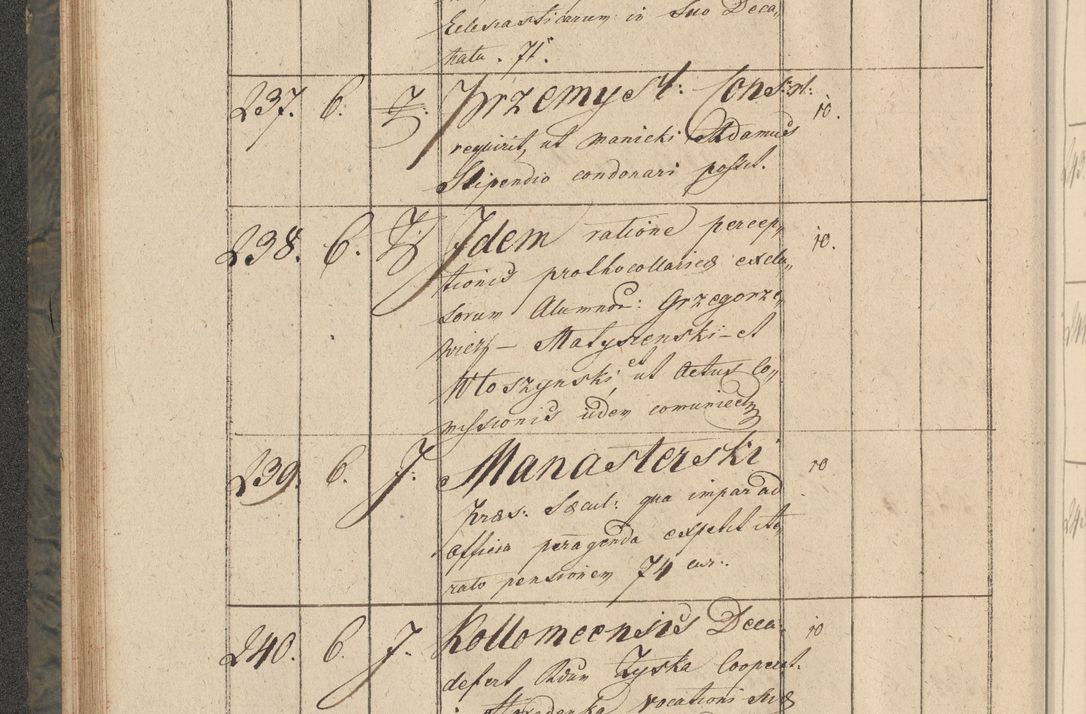 Eclesiasticarum in Suo Deca„
natu . 71.
237. 6. J. Przemysl: Consist. 10.
requirit, ut Manicki Adamus
Stipendio condonari possit.
238. 6. J. Idem ratione percep„
tionis prothocollaries exclu„ 10.
sorum Alumnor: Grzegorze„
wicz – Matysienski – et
Wloszynski, et ut Actus Co„
missionis iidem comunicet
239. 6. J. Manasterski 10
Præs: Sæcul: qua impar ad
officia peragenda expetit ite„
rato pensionem 74 cur:
240. 6. J. Kollomeensis Deca: 10
defert Adm Zyska Cooperat.
vocationi suæ